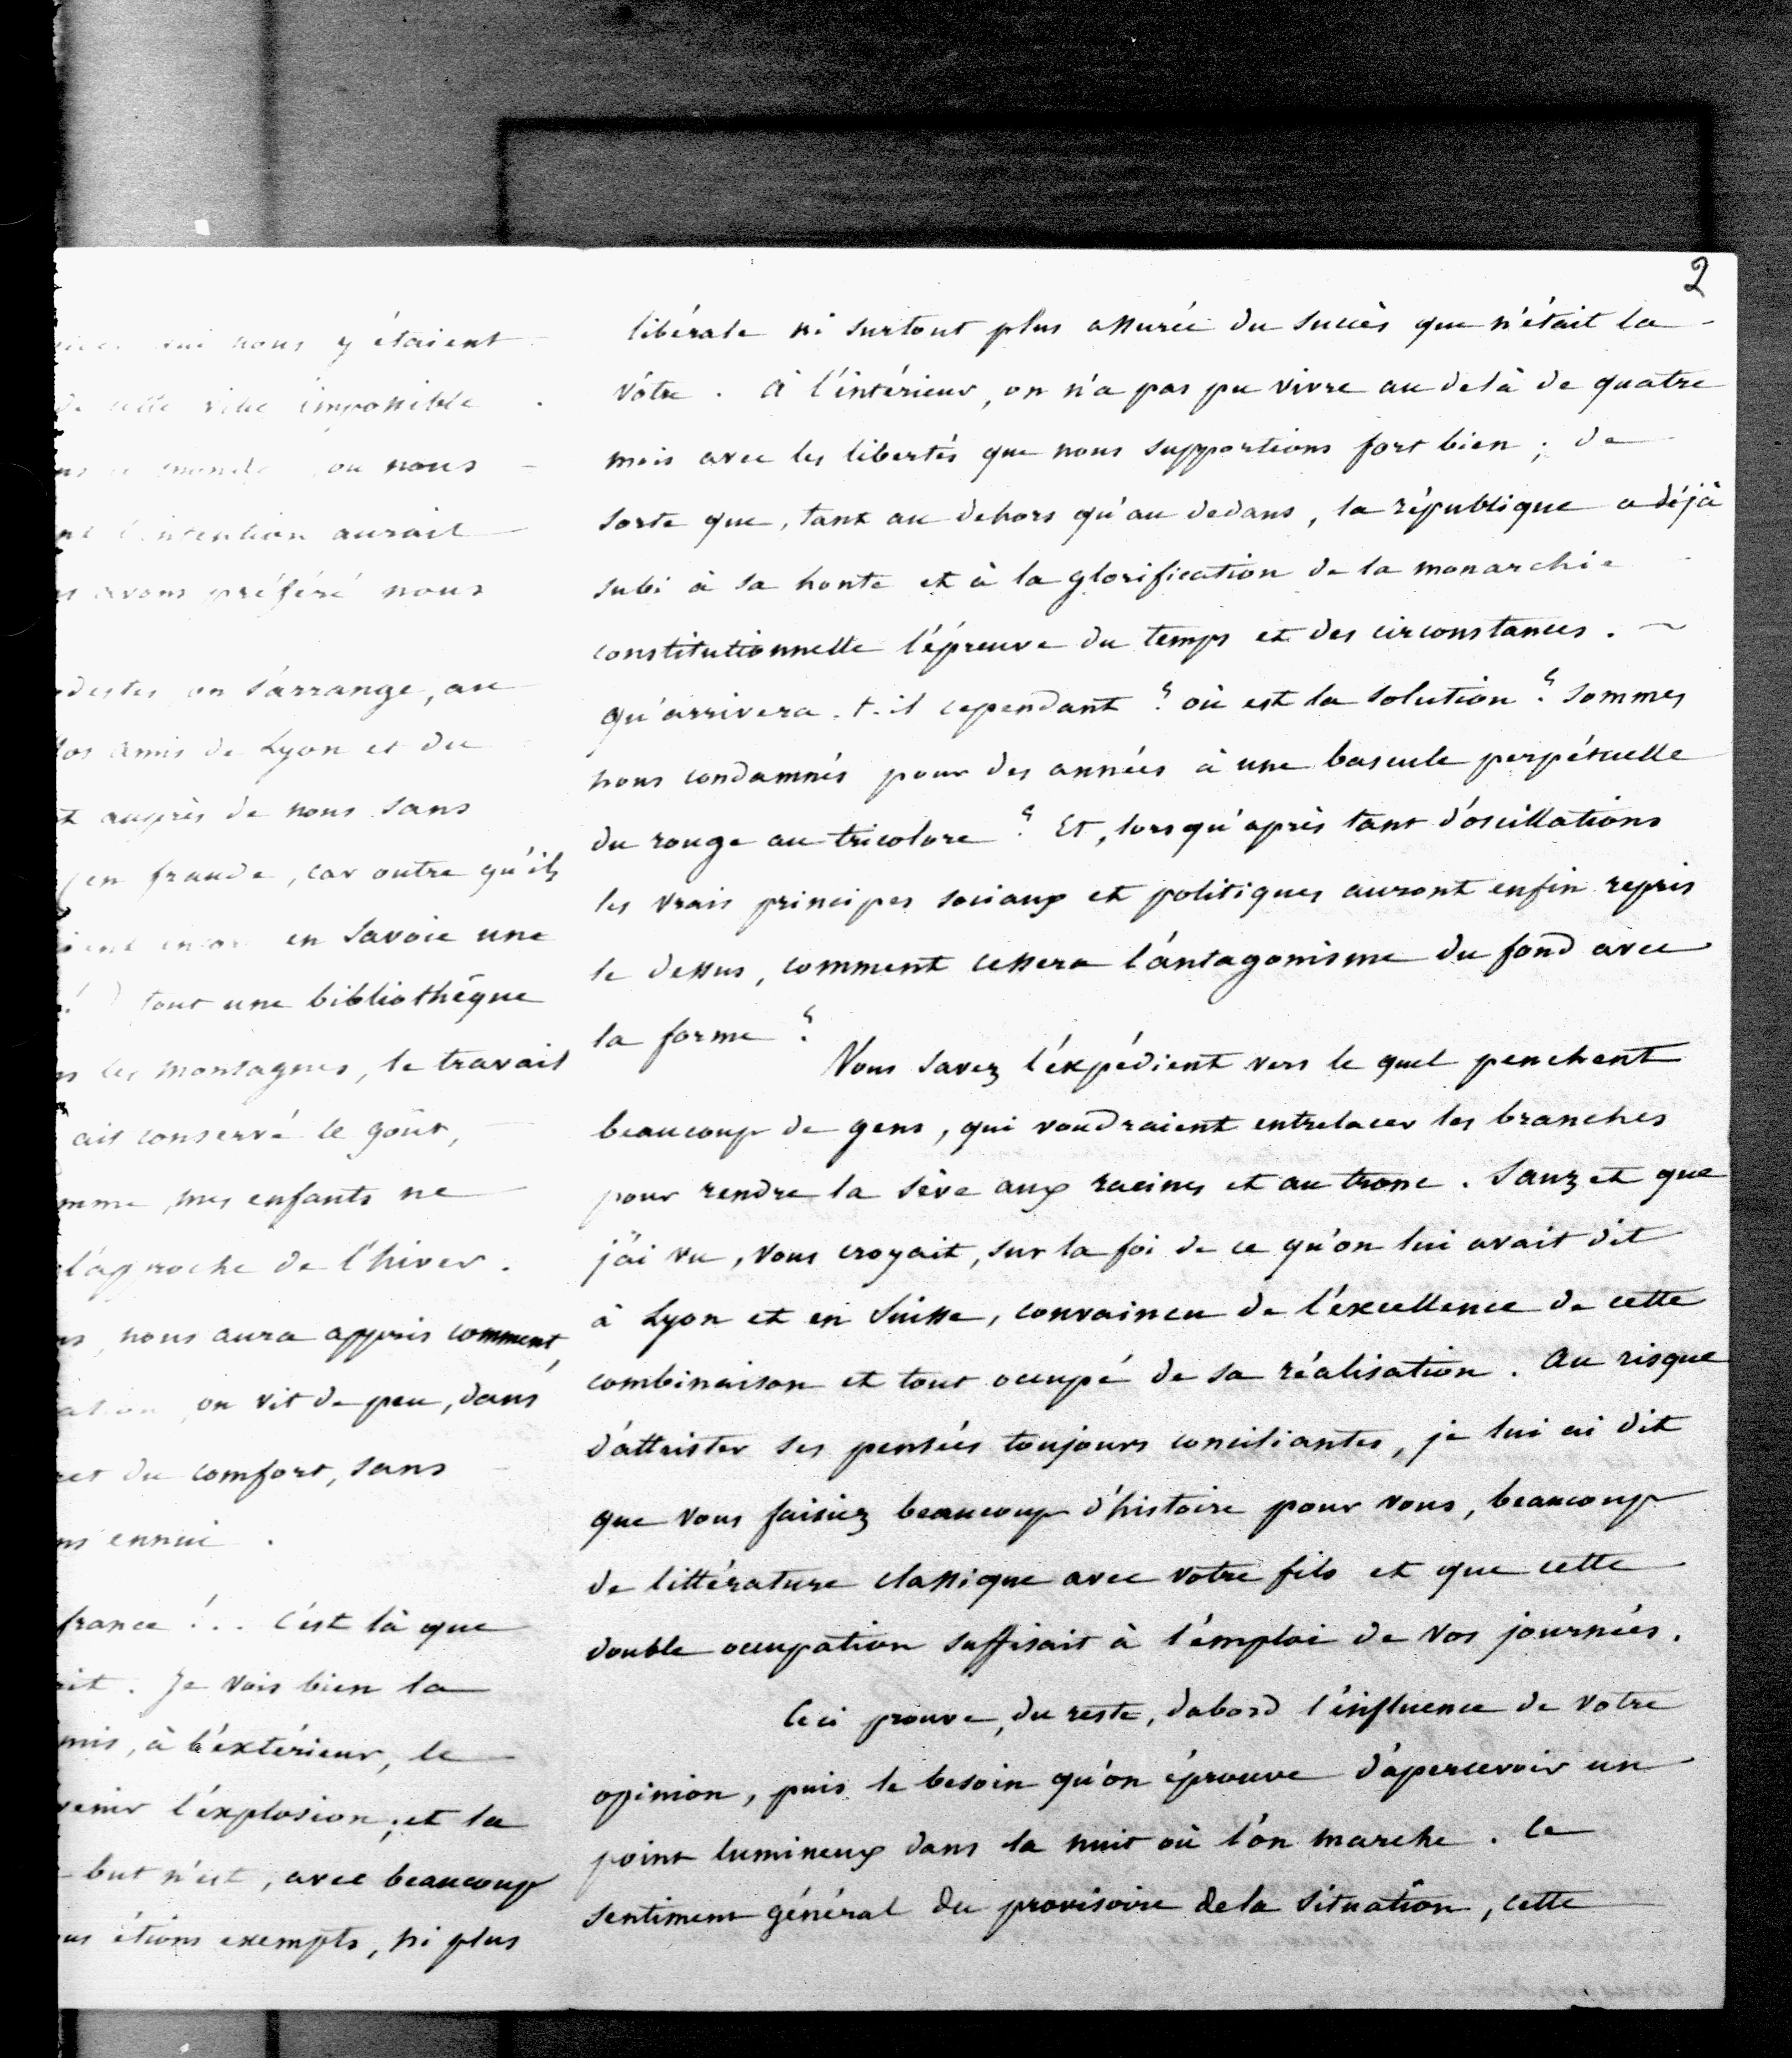 nous y étaient
impossible .
monde ou nous
l'intention aurait
avons préféré nous
on s'arrange, au
amis de Lyon et du
auprès de nous sans
en fraude, car outre qu'ils
en Savoie une
tout une bibliothèque
les montagnes, le travail
ait conservé le goût,
mes enfants ne
l'approche de l'hiver .
nous aura appris comment,
on vit de peu, dans
du comfort, sans
ennui .
france ! .. C'est là que
. Je vois bien la
à l'extérieur, le
l'explosion ; et la
but n'est, avec beaucoup
étions exempts, ni plus
2
libérale ni surtout plus assurée du succès que n'était la
vôtre . à l'intérieur, on n'a pas pu vivre au delà de quatre
mois avec les libertés que nous supportions fort bien ; de
sorte que, tant au dehors qu'au dedans, la république a déjà
subi à sa honte et à la glorification de la monarchie
constitutionnelle l'épreuve du temps et des circonstances . ~
qu'arrivera-t-il cependant ? où est la solution ? sommes
nous condamnés pour des années à une bascule perpétuelle
du rouge au tricolore ? Et, lorsqu'après tant d'oscillations
les vrais principes sociaux et politiques auront enfin repris
le dessus, comment cessera l'antagonisme du fond avec
la forme ?
Vous savez l'expédient vers le quel penchent
beaucoup de gens, qui voudraient entrelacer les branches
pour rendre la sève aux racines et au tronc . Sauzet que
j'ai vu, vous croyait, sur la foi de ce qu'on lui avait dit
à Lyon et en Suisse, convaincu de l'excellence de cette
combinaison et tout occupé de sa réalisation . Au risque
d'attrister ses pensées toujours conciliantes, je lui ai dit
que vous faisiez beaucoup d'histoire pour vous, beaucoup
de littérature classique avec votre fils et que cette
double occupation suffisait à l'emploi de vos journées .
Ceci prouve, du reste, dabord l'influence de votre
opinion, puis le besoin qu'on éprouve d'apercevoir un
point lumineux dans la nuit où l'on marche . Ce
sentiment général du provisoire de la situation, cette